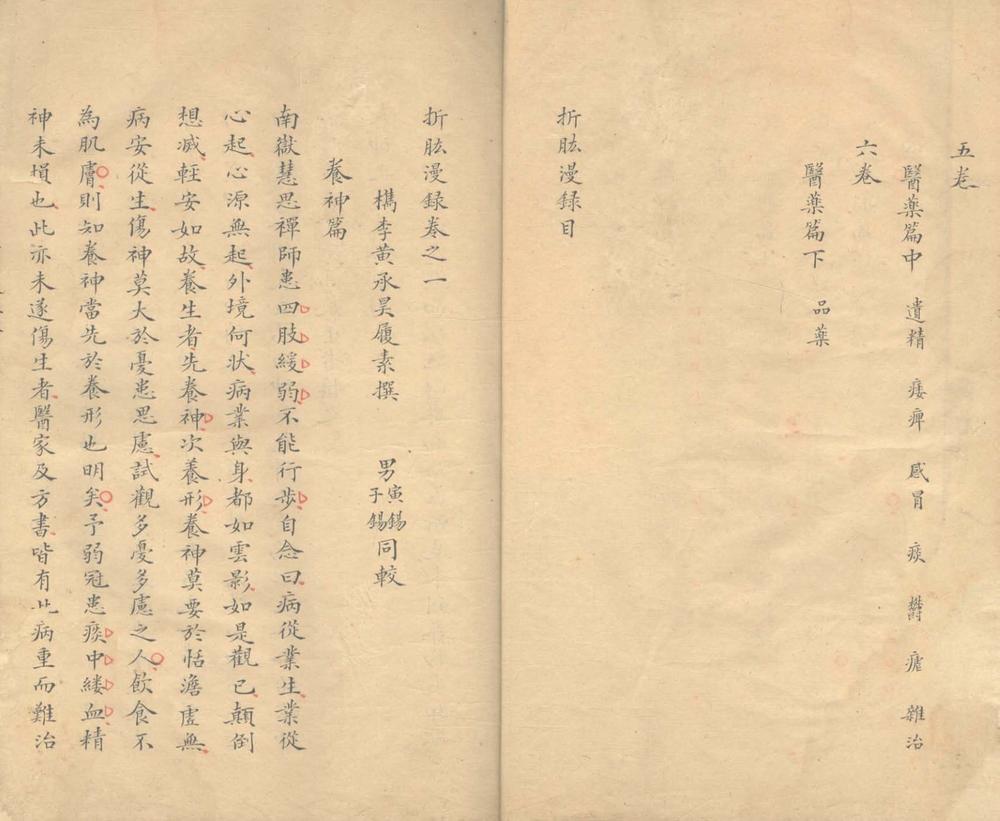 五卷
醫藥篇中 遺精 痿痺 感冒 痰 欝 瘧 雜治
六卷
醫藥篇下 品藥
折肱漫録目
折肱漫録卷之一
檇李黄承昊履素撰 男寅錫子錫同較
養神篇
南嶽慧思禪師患四肢緩弱不能行步自念曰病從業生業從
心起心源無起外境何状病業與身都如雲影如是觀已顛倒
想滅輕安如故養生者先養神次養形養神莫要於恬澹虛無
病安從生傷神莫大於憂患思慮試觀多憂多慮之人飲食不
為肌膚則知養神當先於養形也明矣予弱冠患痰中縷血精
神未損也此亦未遂傷生者醫家及方書皆有此病重而難治